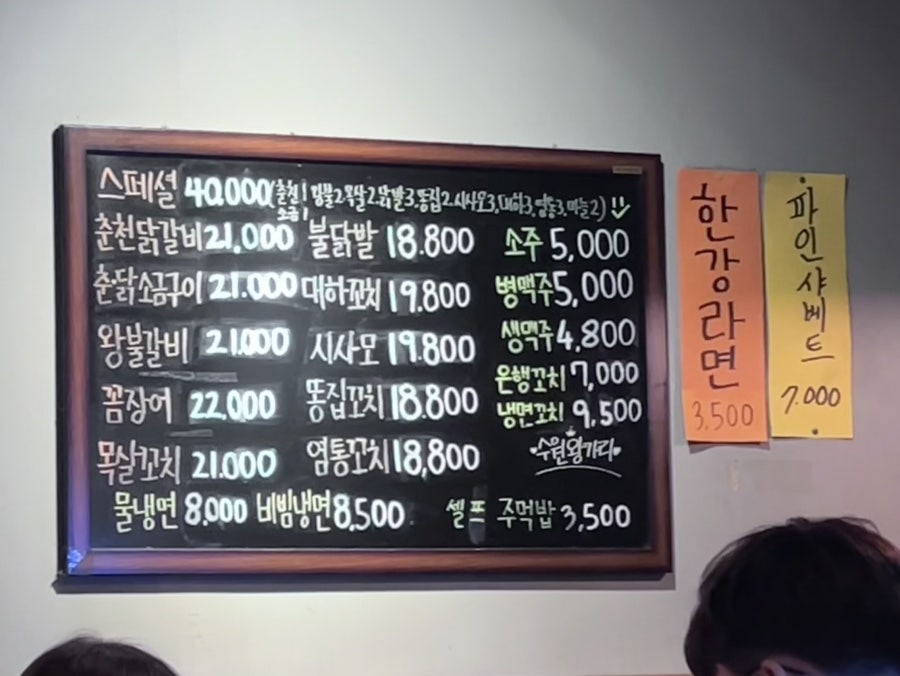 스페셜 40,000 (춘천1 왕불2, 목살2, 닭발3, 똥집2, 시사모3, 대하3, 염통3, 마늘2)
소금1
춘천닭갈비 21,000 불닭발 18.800 소주 5,000
춘·닭소금구이 21.000 대하꼬치 19.800 병맥주 5,000
왕불갈비 21.000 시사모 19.800 생맥주 4,800
은행꼬치 7,000
꼼장어 22,000 똥집꼬치 18.800 냉면꼬치 9,500
목살꼬치 21.000 염통꼬치 18,800 수원왕가리
물냉면 8.000 비빔냉면 8,500 셀프 주먹밥 3,500
한강라면
3,500
파인샤베트
7.000